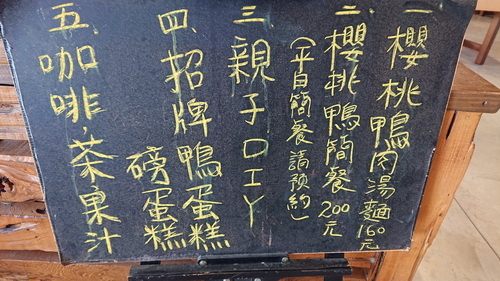 一櫻桃鴨肉湯麵160元
二、櫻桃鴨簡餐200元
(平日簡餐請預約)
三親子DIY
四.招牌鴨蛋蛋糕
磅蛋糕
五、咖啡,茶,果汁